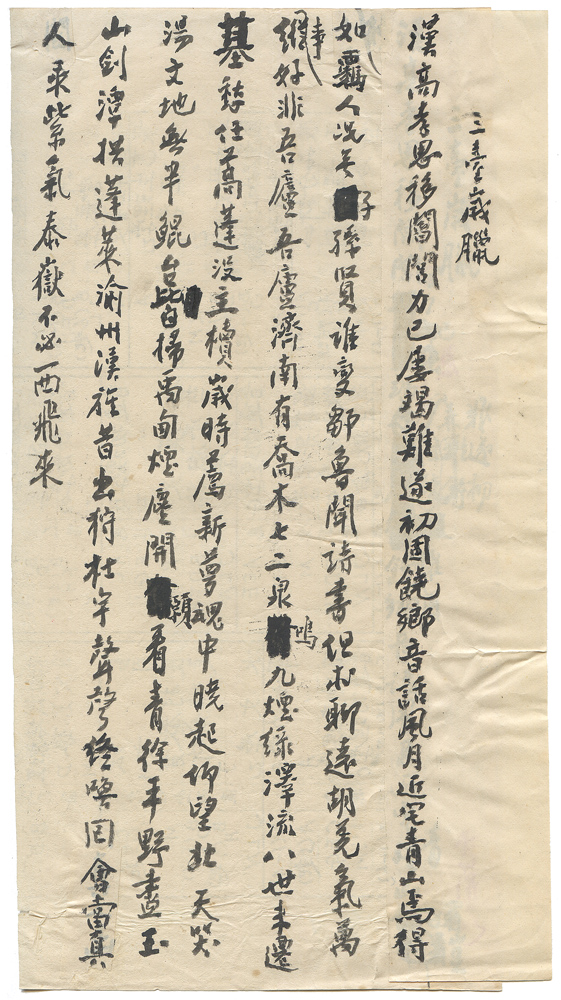 三臺歲臘
漢高孝思移閭閻力已屢竭難遂初固饒鄉音話風月近宅青山焉得
如羈人況無子孫賢誰變鄒魯聞詩書但求聊遠胡羌氣萬
事縱好非吾廬吾廬濟南有喬木七二泉鳴九煙綠澤流八世未遷
墓愁任蒿蓬沒主櫝歲時薦新夢魂中曉起仰望北天哭
湯文地無半鯤台皆掃禹甸煙塵開願看青徐平野盡玉
山劍潭拱蓬萊渝州漢旌昔出狩杜宇聲聲終喚回會當真
人乘紫氣泰嶽不必西飛來